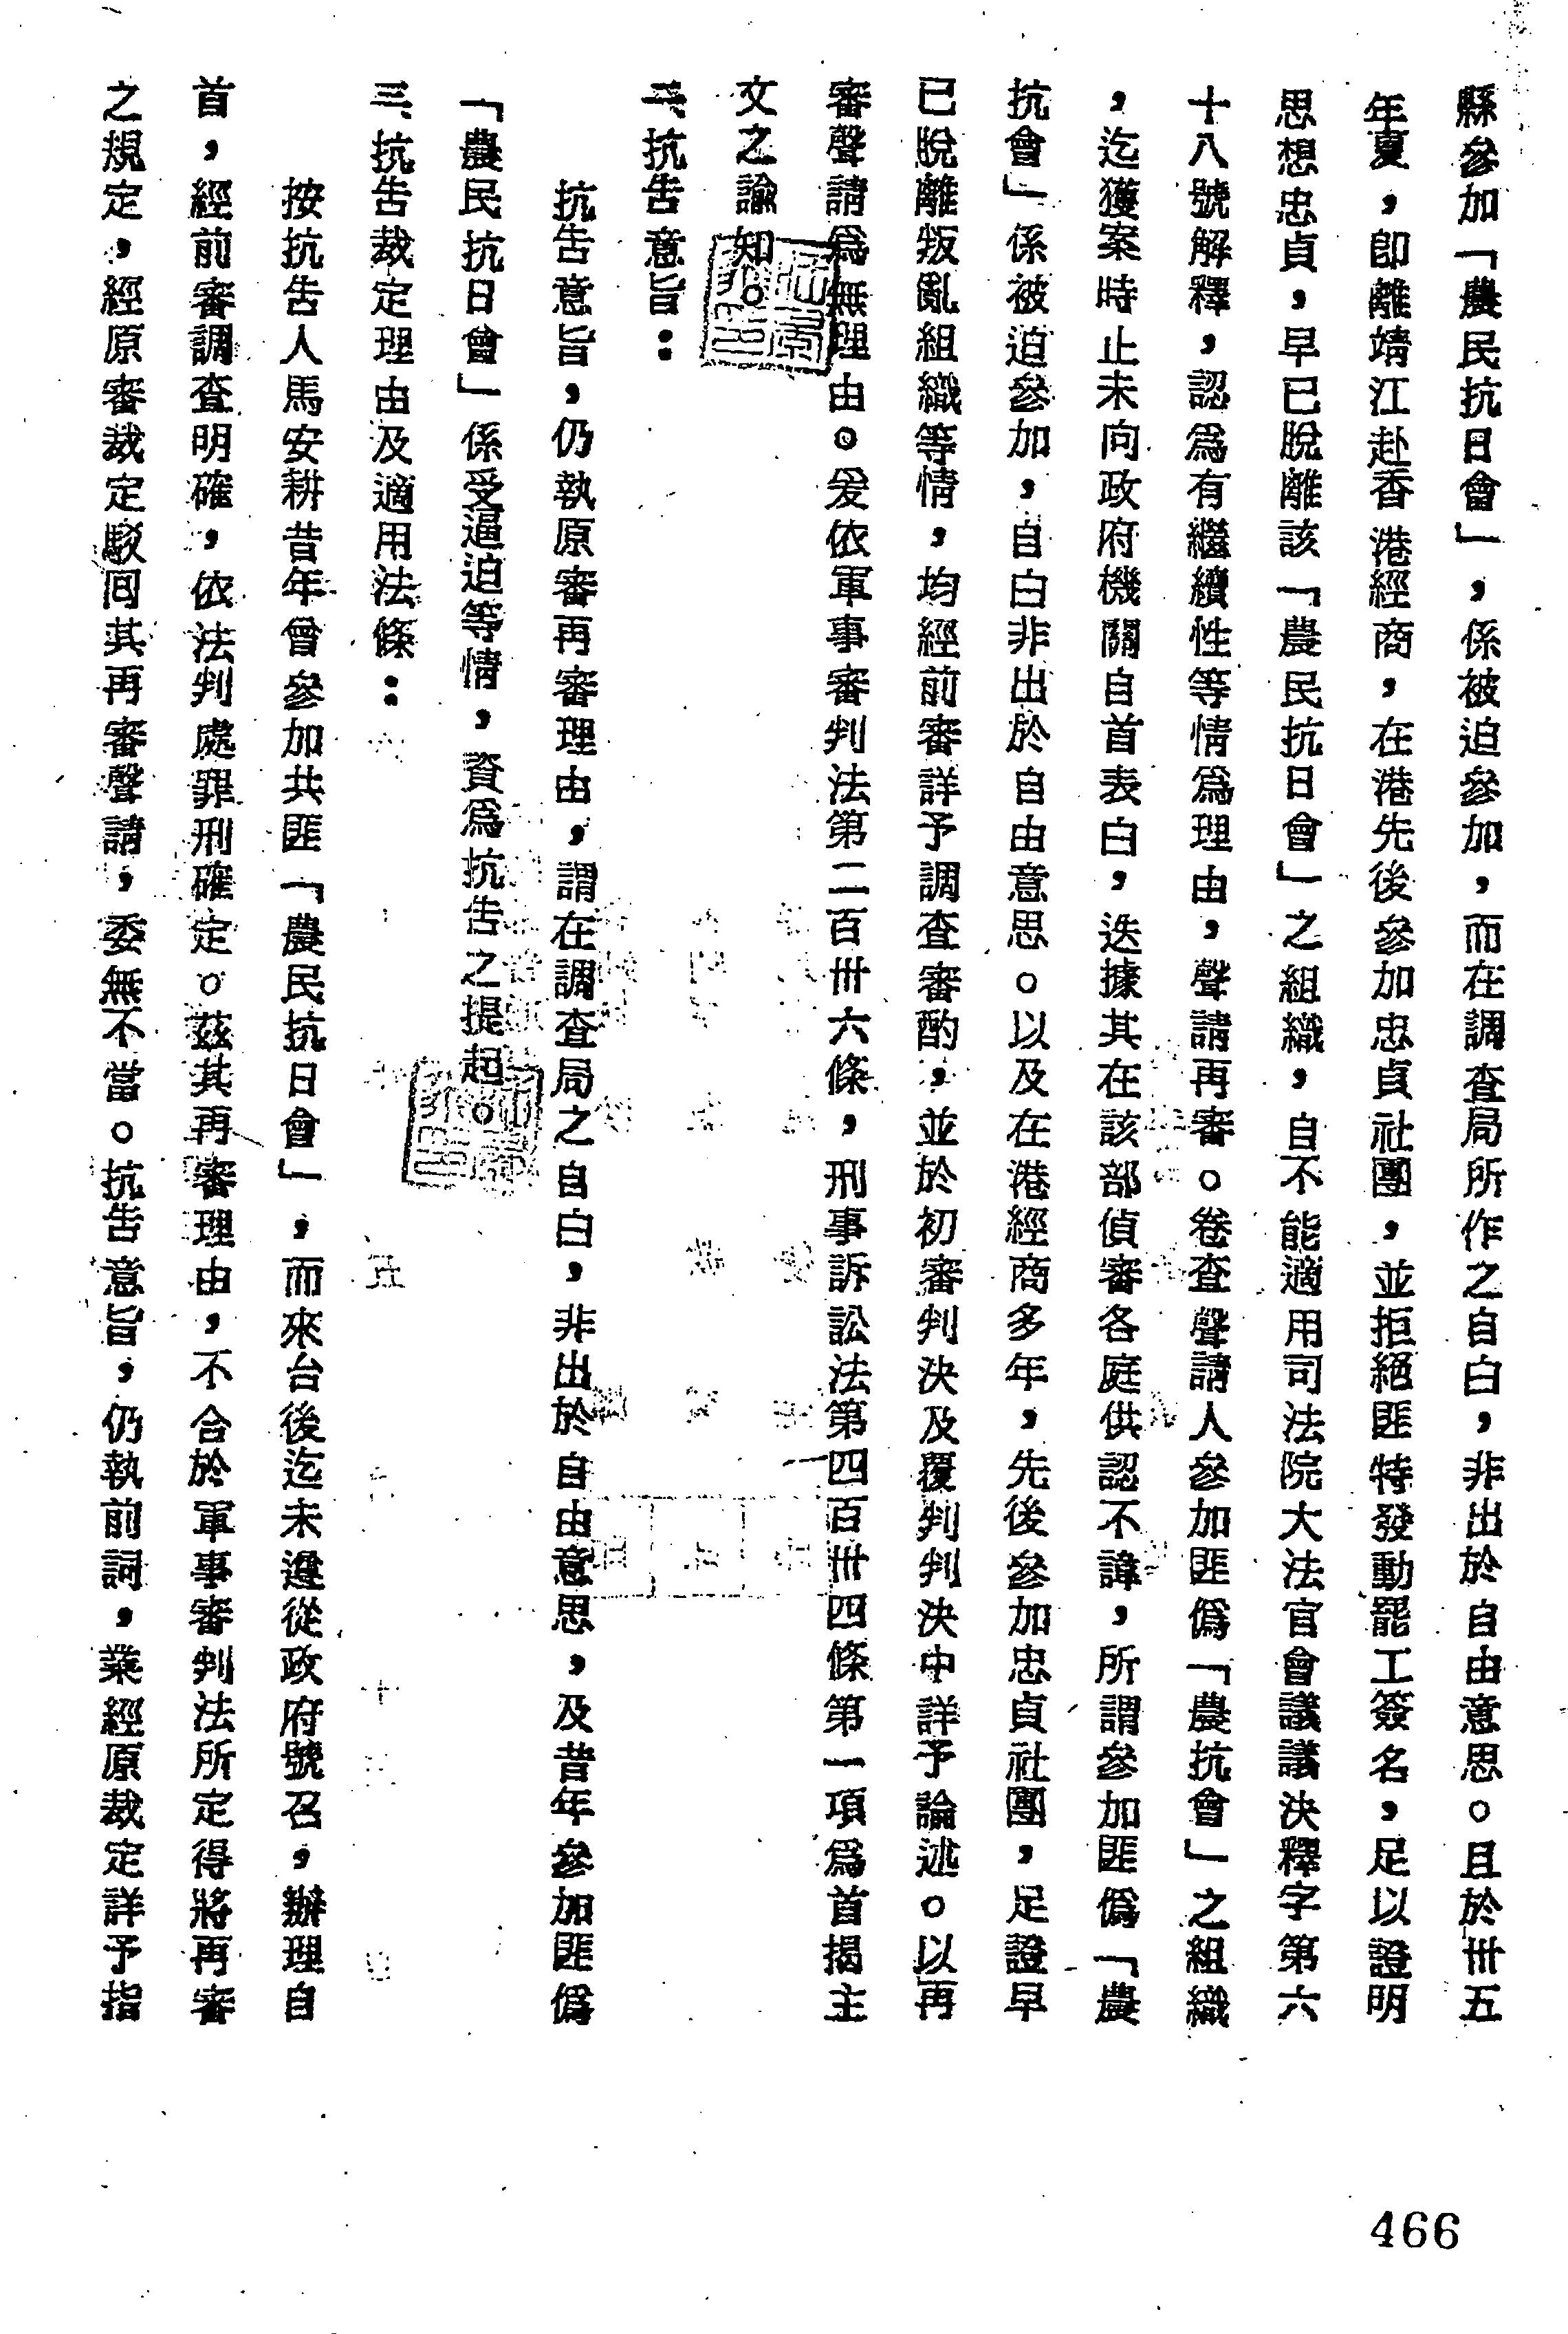 縣參加「農民抗日會」，係被迫參加，而在調查局所作之自白，非出於自由意思。且於卅五
年夏，卽離靖江赴香港經商，在港先後參加忠貞社團，並拒絕匪特發動罷工簽名，足以證明
思想忠貞，早已脫離該「農民抗日會」之組織，自不能適用司法院大法官會議議決釋字第六
十八號解釋，認爲有繼續性等情爲理由，聲請再審。卷查聲請人參加匪僞「農抗會」之組織
，迄獲案時止未向政府機關自首表白，迭據其在該部偵審各庭供認不諱，所謂參加匪僞「農
抗會」係被迫參加，自白非出於自由意思。以及在港經商多年，先後參加忠貞社團，足證早
已脫離叛亂組織等情，均經前審詳予調查審酌，並於初審判決及覆判判決中詳予論述。以再
審聲請爲無理由。爰依軍事審判法第二百卅六條，刑事訴訟法第四百卅四條第一項爲首揭主
文之諭知。
二、抗告意旨：
抗告意旨，仍執原審再審理由，謂在調查局之自白，非出於自由意思，及昔年參加匪僞
「農民抗日會」係受逼迫等情，資爲抗告之提起。
三、抗告裁定理由及適用法條：
按抗告人馬安耕昔年曾參加共匪「農民抗日會」，而來台後迄未遵從政府號召，辦理自
首，經前審調查明確，依法判處罪刑確定。茲其再審理由，不合於軍事審判法所定得將再審
之規定，經原審裁定駁回其再審聲請，委無不當。抗告意旨，仍執前詞，業經原裁定詳予指
466